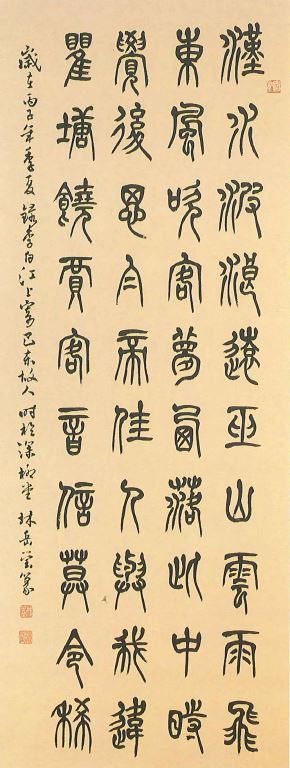 漢水波浪遠巫山雲雨飛
東風吹客夢西落此中時
覺後思白帝佳人與我違
瞿塘饒賈客音信莫令稀
歲在丙子年季夏錄李白江上寄巴東故人時於深柳堂林岳瑩篆